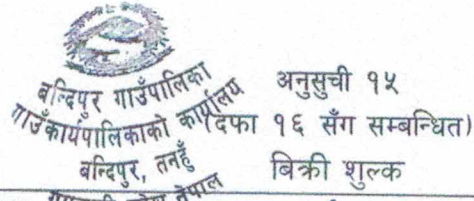 बन्दिपुर गाउँपालिका
गाउँकार्यपालिकाको कार्यालय
बन्दिपुर, तनहुँ
नेपाल
अनुसुची १५
(दफा १६ सँग सम्बन्धित)
बिक्री शुल्क